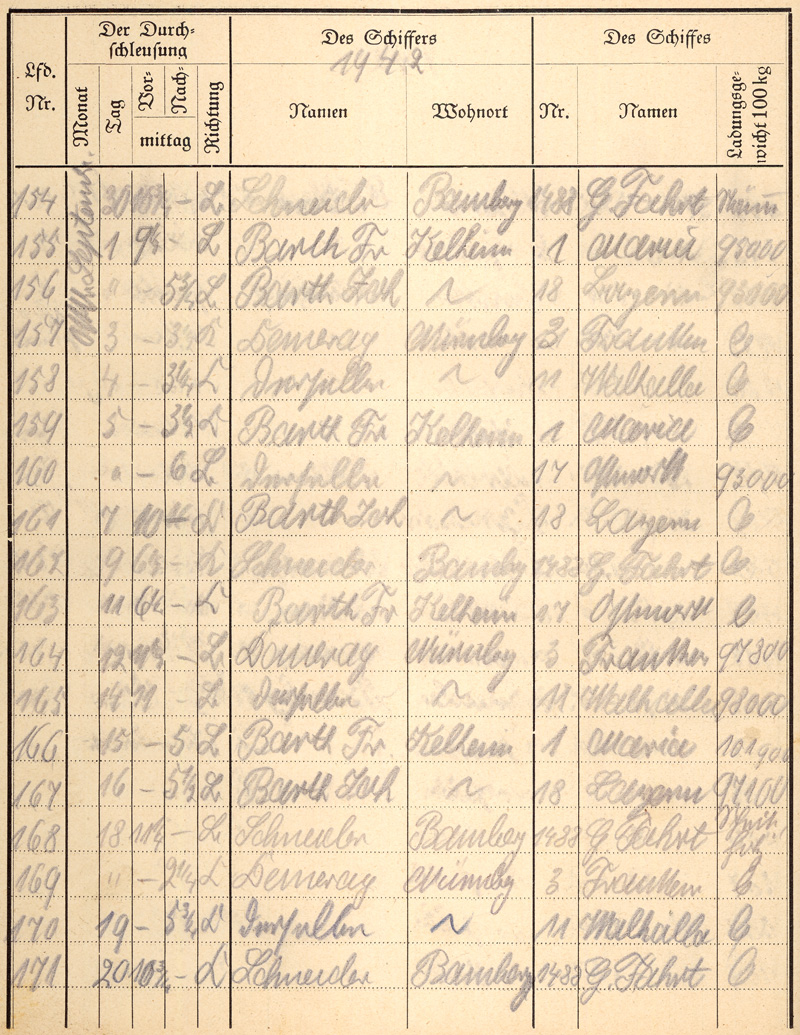 Lfd. Nr.
Der Durch-
schleusung
Monat
Tag
Vor-
Nach-
mittag
Richtung
Des Schiffers
1942
Namen
Wohnort
Des Schiffes
Nr.
Namen
Ladungsge-
wicht 100 kg
Septemb.
154 30 - L Schneider Bamberg 1433 G. Fahrt
155 1 9½ - L Barth Fr Kelheim 1 Maria 95000
156 " - 5¾ L Barth Joh ~ 18 Bayern 93000
157 3 - 3½ L Demerag Nürnbg 3 Franken
158 4 - 3¼ L Derselbe ~ 11 Walhalla
159 5 - 3½ L Barth Fr Kelheim 1 Maria
160 " - 6 L Derselbe ~ 17 Ostmark 93000
161 7 10 - L Barth Joh ~ 18 Bayern
162 9 6½ - L Schneider Bamberg 1433 G. Fahrt
163 11 6¼ - L Barth Fr Kelheim 17 Ostmark
164 12 - L Demerag Nürnbg 3 Franken 97300
165 14 11 - L Derselbe ~ 11 Walhalla 98000
166 15 - 5 L Barth Fr. Kelheim 1 Maria 101900
167 16 - 5½ L Barth Joh ~ 18 Bayern 97100
168 18 11½ - L Schneider Bamberg 1433 G Fahrt
169 " - 2¼ L Demerag Nürnbg 3 Franken
170 19 - 5¾ L Derselbe ~ 11 Walhalla
171 20 10¾ - L Schneider Bamberg 1433 G. Fahrt